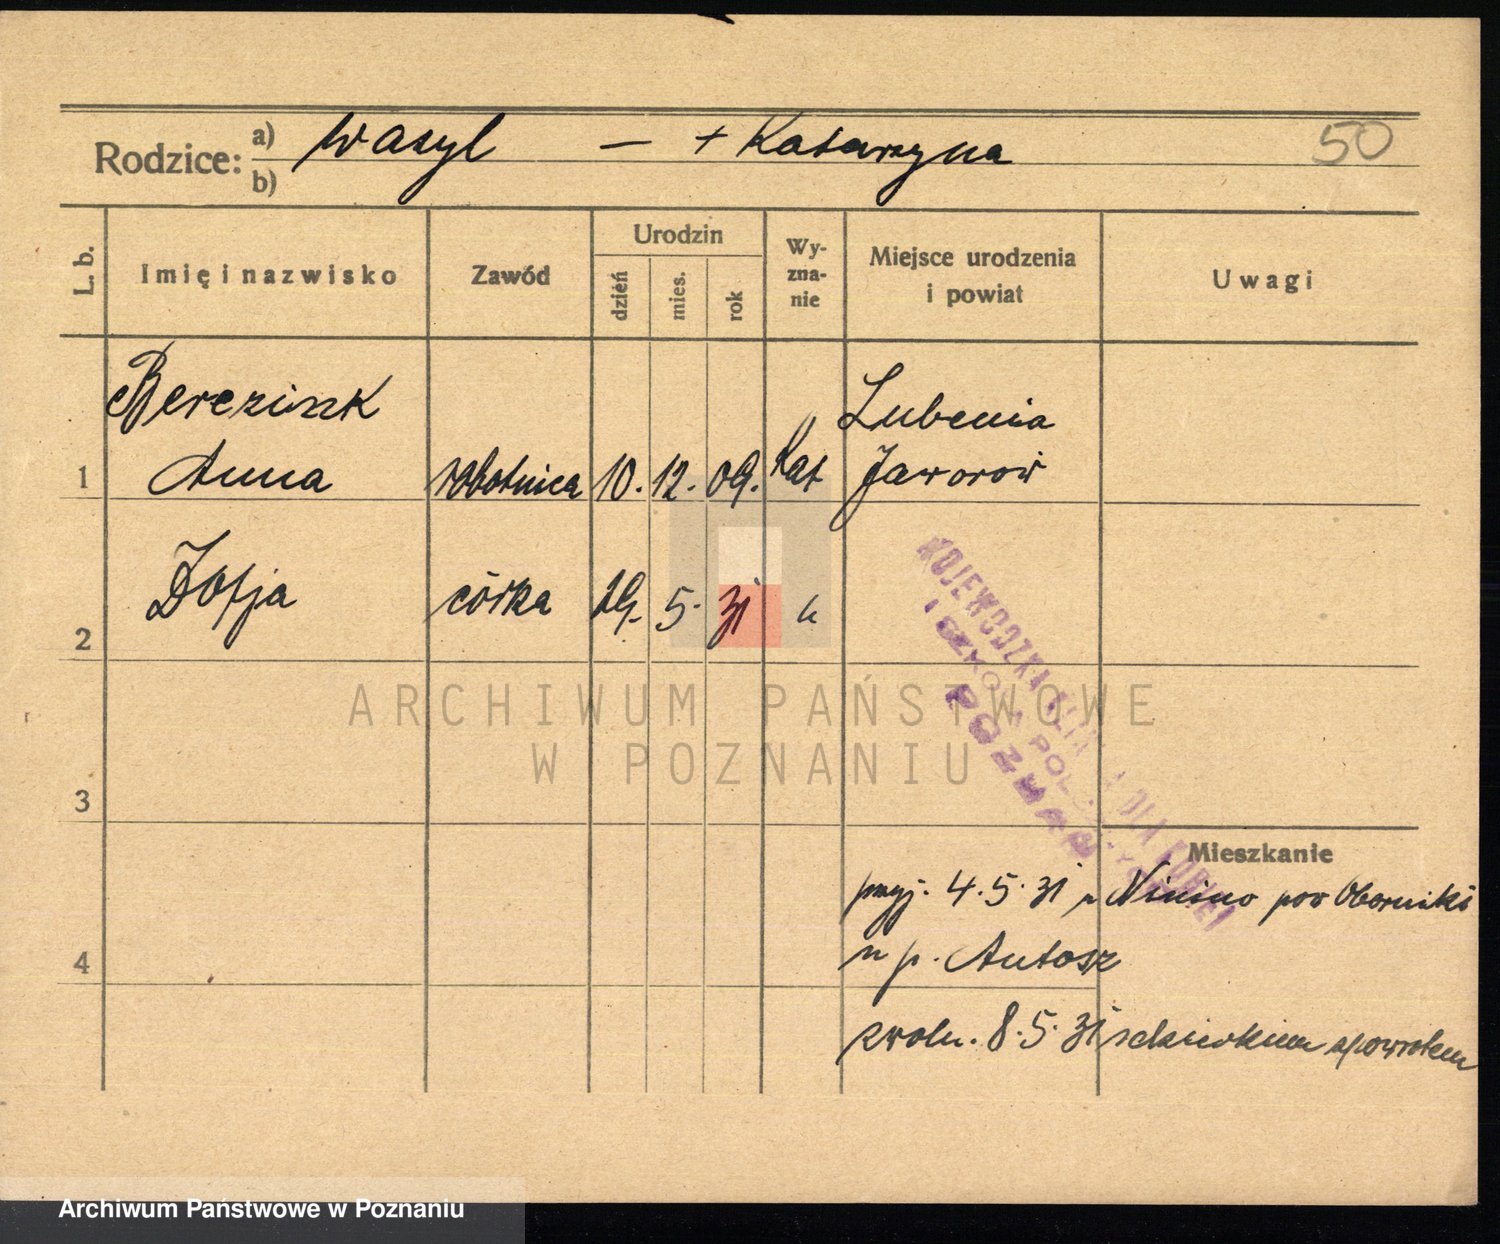 Rodzice: a) Wasyl — + Katarzyna 50
b)
L. b. Imię i nazwisko Zawód Urodzin dzień mies. rok Wyznanie Miejsce urodzenia i powiat Uwagi
Berezink Lubenia
1 Anna robotnica 10. 12. 09. Kat Jaworów
2 Zofja córka 29. 5. 31 "
WOJEWÓDZKA KLINIKA DLA KOBIET
I SZKOŁA POŁOŻNYCH
POZNAŃ
ARCHIWUM PAŃSTWOWE
W POZNANIU
3
Mieszkanie
przyj. 4.5.31 Ninino pow Oborniki
4 u p. Antosz
zwoln. 8.5.31 z dzieckiem z powrotem
Archiwum Państwowe w Poznaniu